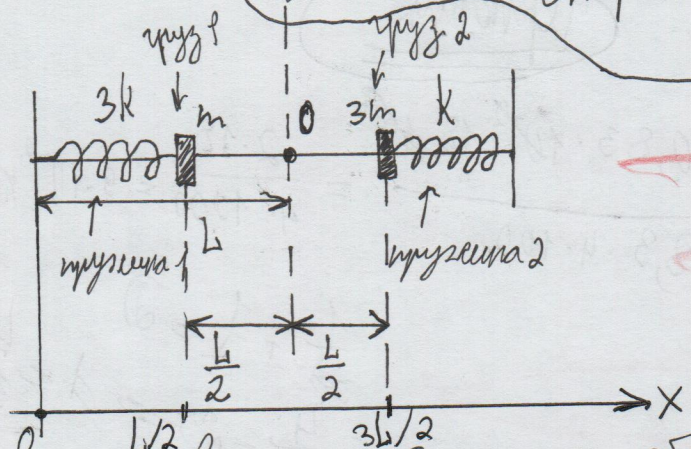 груз 1
груз 2
3k
m
O
3m
k
L
пружина 1
пружина 2
L/2
L/2
X
0
L/2
3L/2